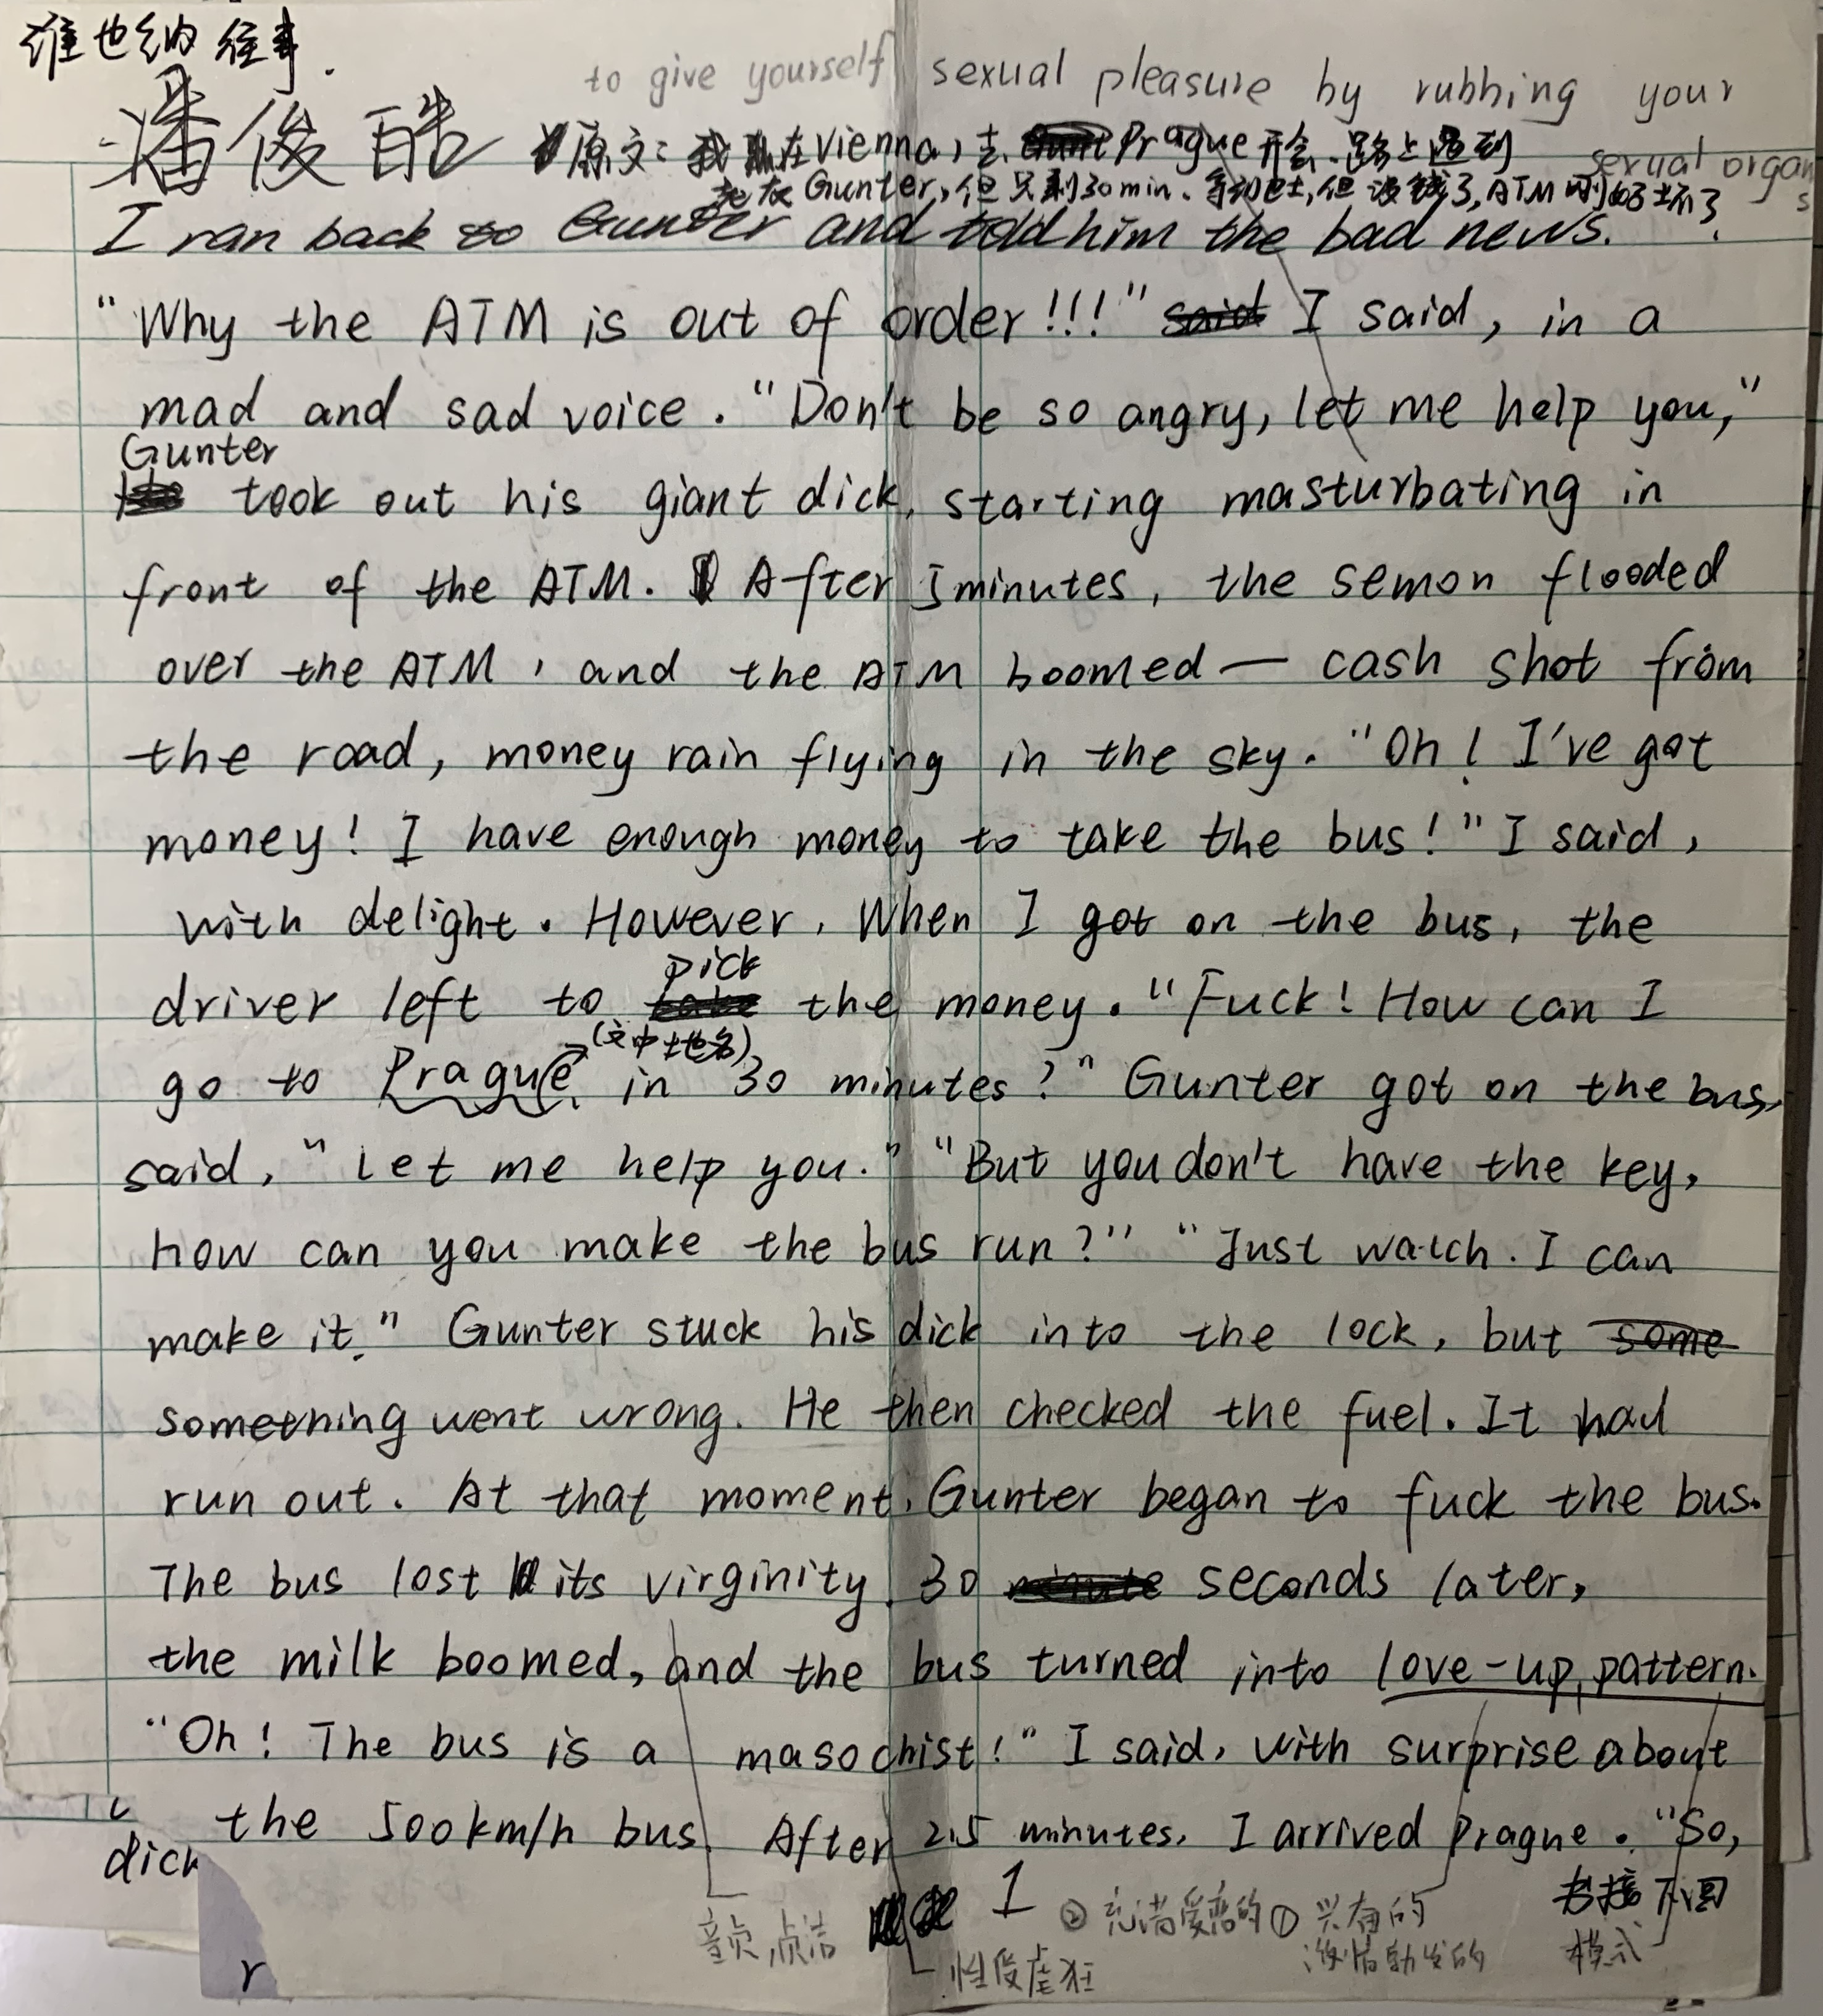 维也纳往事.
to give yourself sexual pleasure by rubbing your
sexual organs
潘俊酷 原文: 我在Vienna, 去Prague开会. 路上遇到
老友Gunter, 但只剩30min. 等到巴士, 但没钱了, ATM刚好坏了.
I ran back to Gunter and told him the bad news.
"Why the ATM is out of order!!!" said I said, in a
mad and sad voice. "Don't be so angry, let me help you,"
Gunter
took out his giant dick, starting masturbating in
front of the ATM. After 5 minutes, the semon flooded
over the ATM, and the ATM boomed — cash shot from
the road, money rain flying in the sky. "Oh! I've got
money! I have enough money to take the bus!" I said,
with delight. However, When I got on the bus, the
pick
driver left to take the money. "Fuck! How can I
(文中地名)
go to Prague, in 30 minutes?" Gunter got on the bus,
said, "Let me help you." "But you don't have the key,
How can you make the bus run?" "Just watch. I can
make it." Gunter stuck his dick into the lock, but some
something went wrong. He then checked the fuel. It had
run out. At that moment, Gunter began to fuck the bus.
The bus lost its virginity. 30 minute seconds later,
the milk boomed, and the bus turned into love-up pattern.
"Oh! The bus is a masochist!" I said, with surprise about
the 500km/h bus. After 2.5 minutes, I arrived Prague. "So,
dick
1
书接下回
童贞, 贞洁
②充满爱恋的 ①兴奋的
激情勃发的
模式
性受虐狂
r